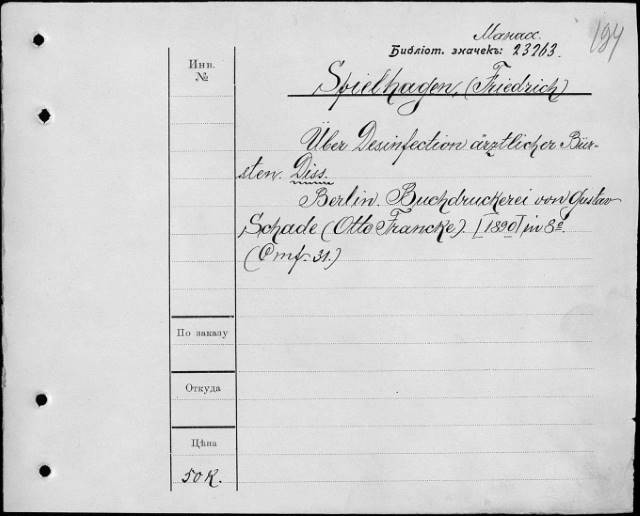 Манах.
Библіот. значекъ: 23263.
194
Инв.
№
Spielhagen, (Friedrich)
Über Desinfection ärztlicher Bür-
sten. Diss.
Berlin. Buchdruckerei von Gustav
Schade (Otto Francke). [1890] in 8º.
(Omf. 31.)
По заказу
Откуда
Цѣна
50 к.